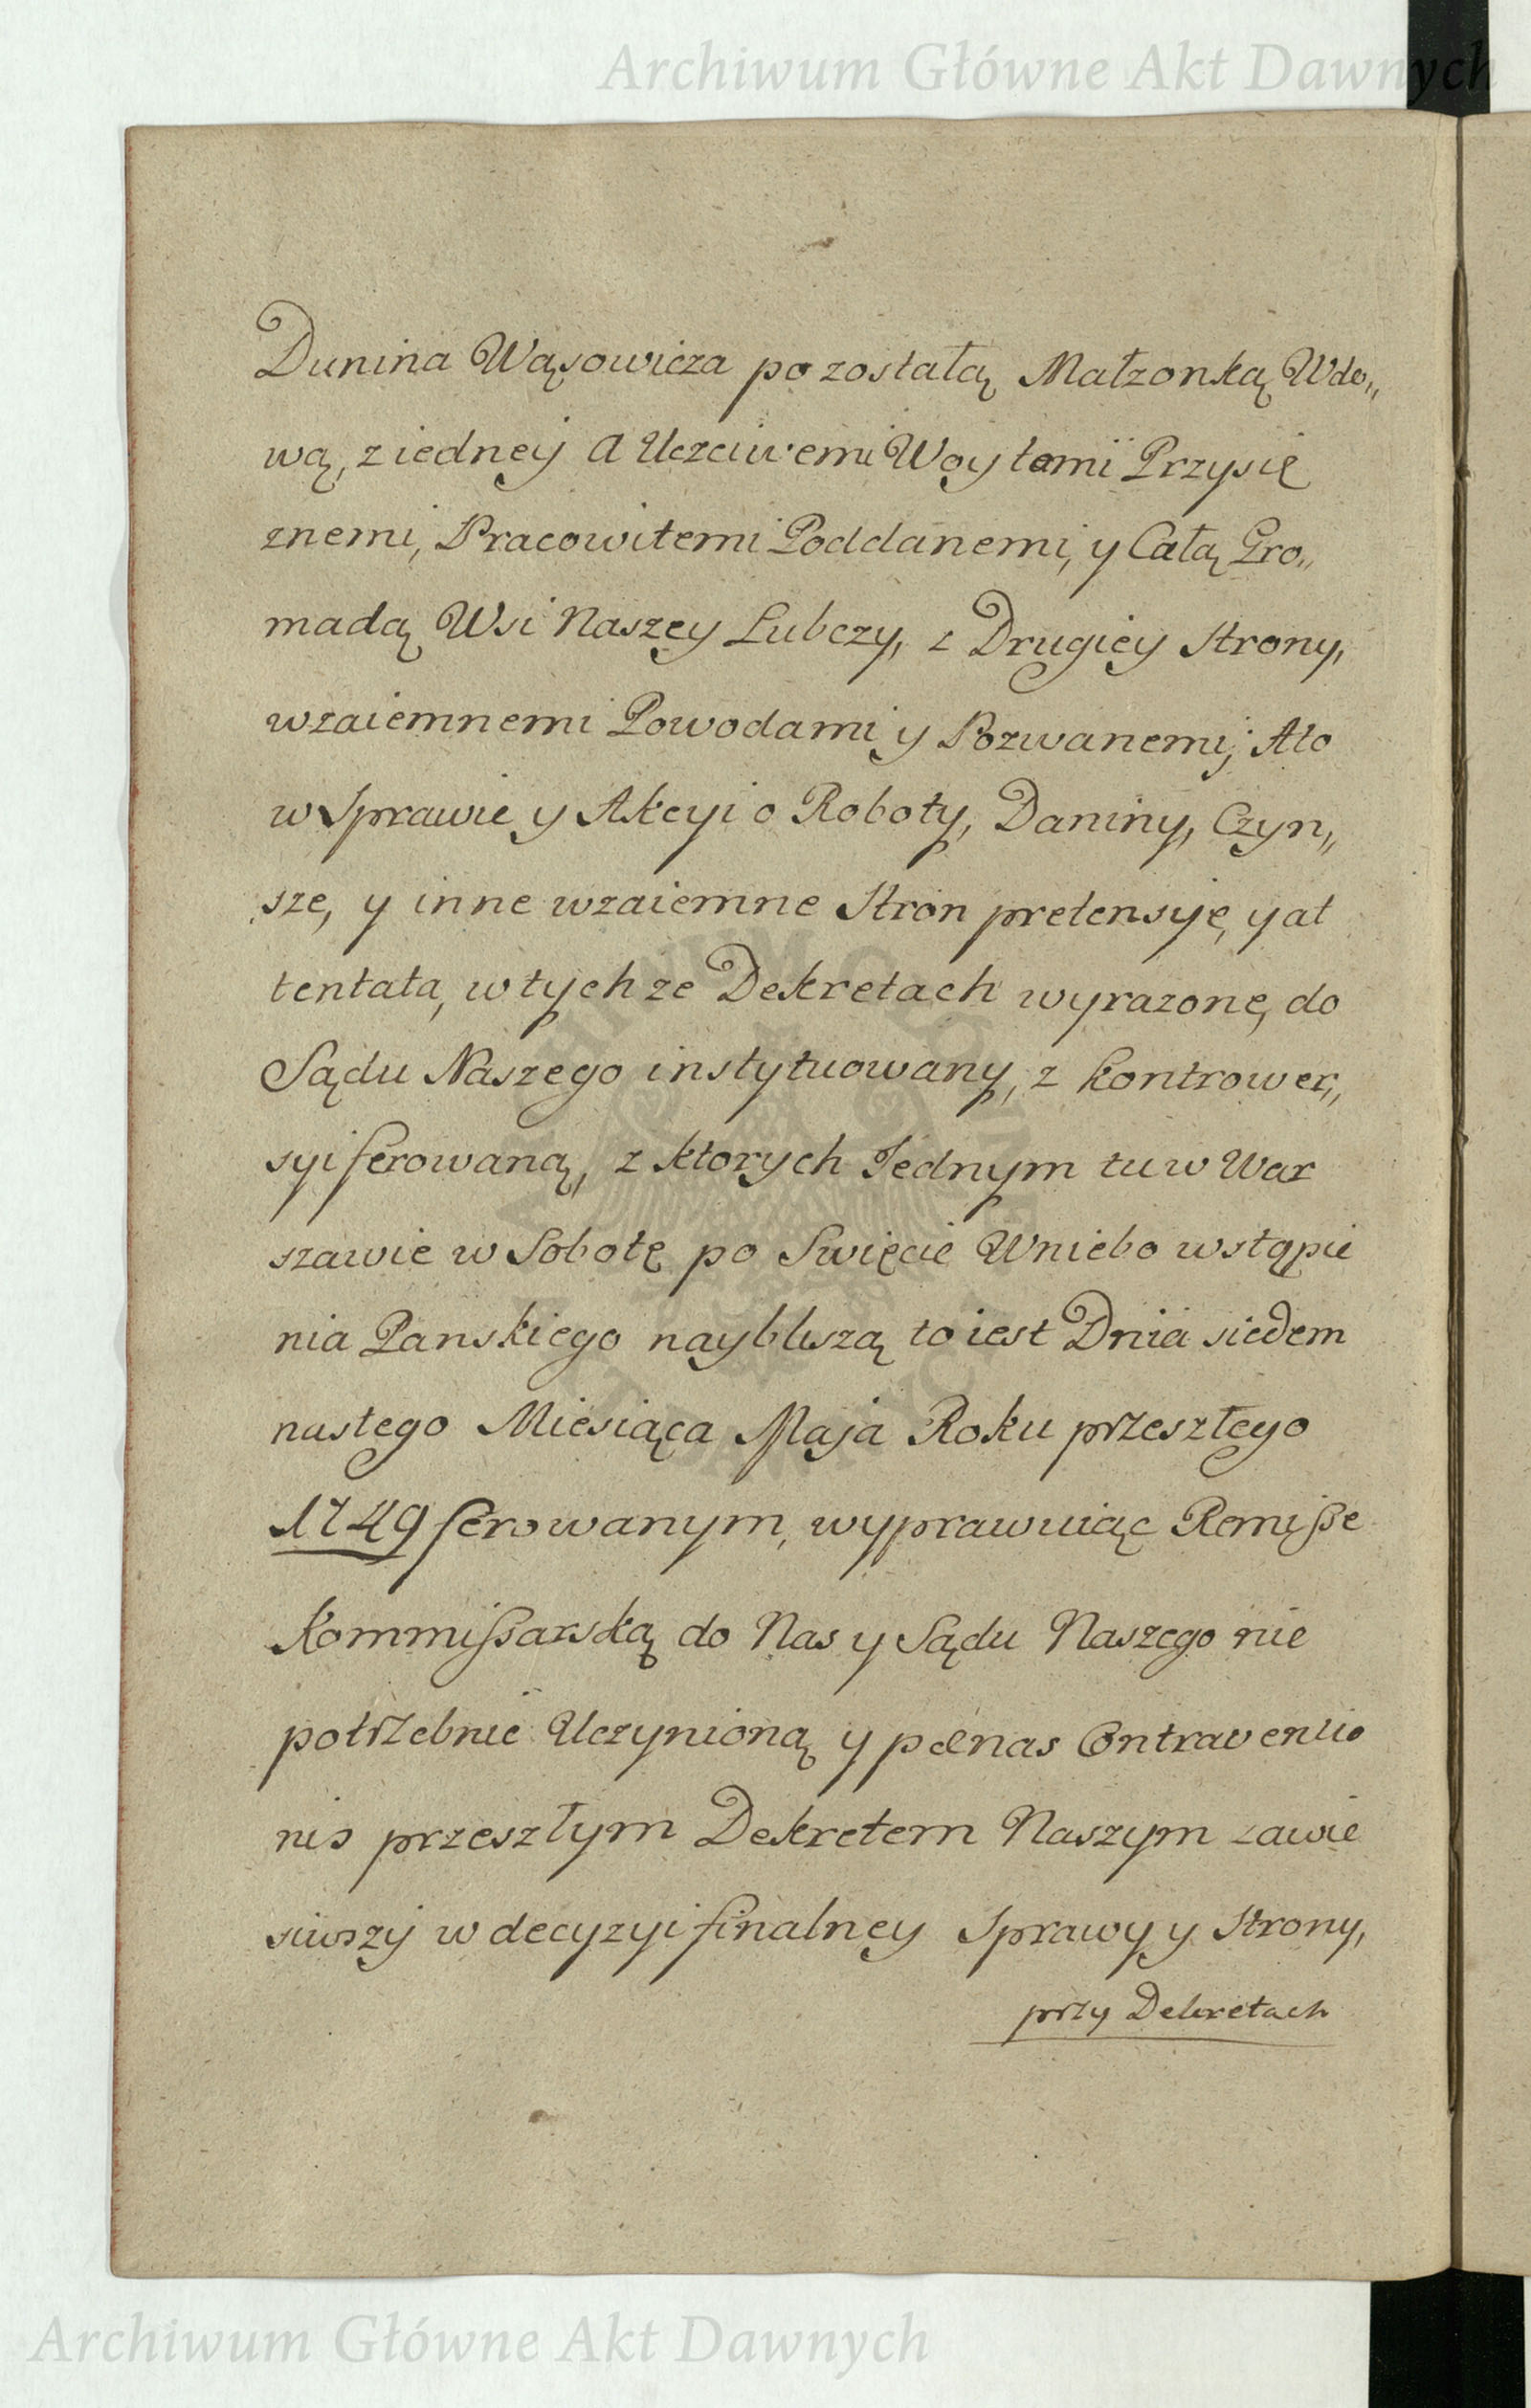 Archiwum Główne Akt Dawnych
Dunina Wąsowicza pozostałą Małzonką Wdo„
wą, z iedney A Uczciwemi Woytami Przysię
znemi, Pracowitemi Poddanemi, y Całą Gro„
madą Wsi Naszey Lubczy, z Drugiey Strony,
wzaiemnemi Powodami y Pozwanemi, Ato
w Sprawie y Akcyi o Roboty, Daniny, Czyn„
sze, y inne wzaiemne Stron pretensye, y at
tentata, w tych ze Dekretach wyrazone, do
Sądu Naszego instytuowany, z kontrower„
syi ferowaną, z ktorych Jednym tu w War
szawie w Sobotę po Swięcie Wniebo wstąpie
nia Panskiego naybliszą to iest Dnia siedem
nastego Miesiąca Maja Roku przeszłego
1749 ferowanym, wyprawuiąc Remisse
Kommissarską do Nas y Sądu Naszego nie
potrzebnie Uczynioną y pænas Contraventio
nis przeszłym Dekretem Naszym zawie
siwszy w decyzyi finalney Sprawy y Strony,
przy Dekretach
Archiwum Główne Akt Dawnych